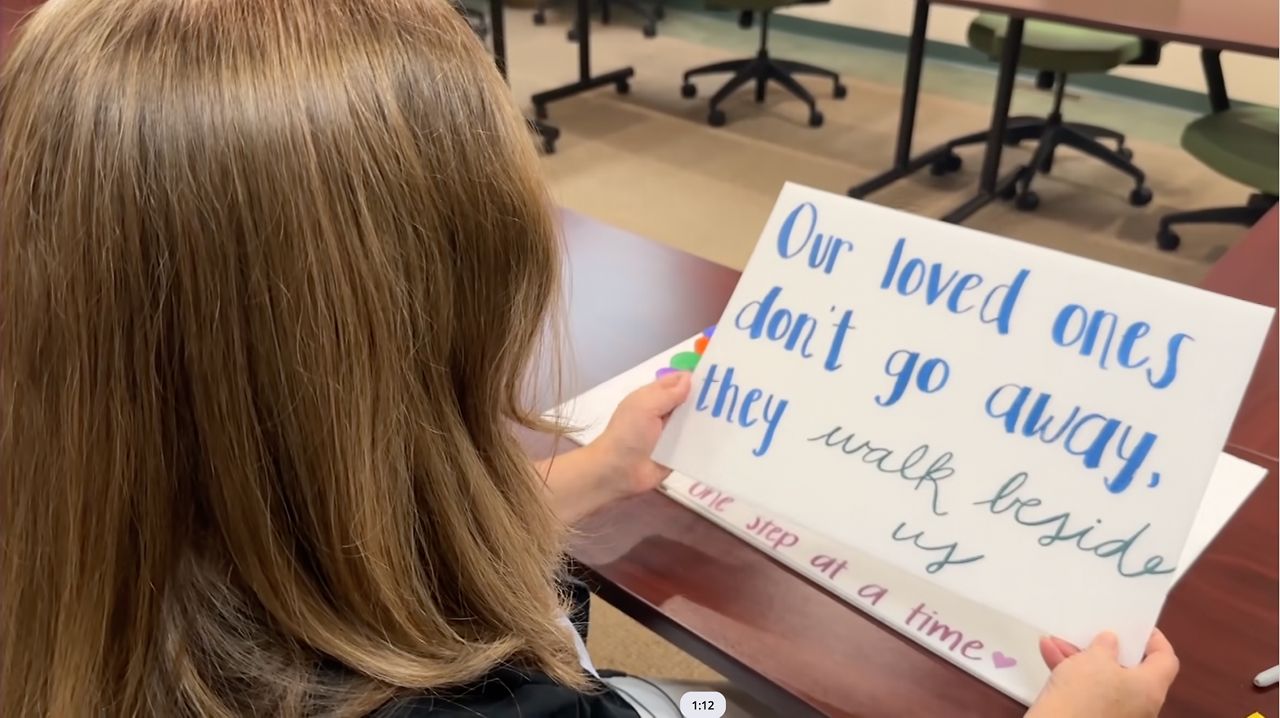 Our loved ones
don't go away,
they walk beside
us
one step at a time
1:12